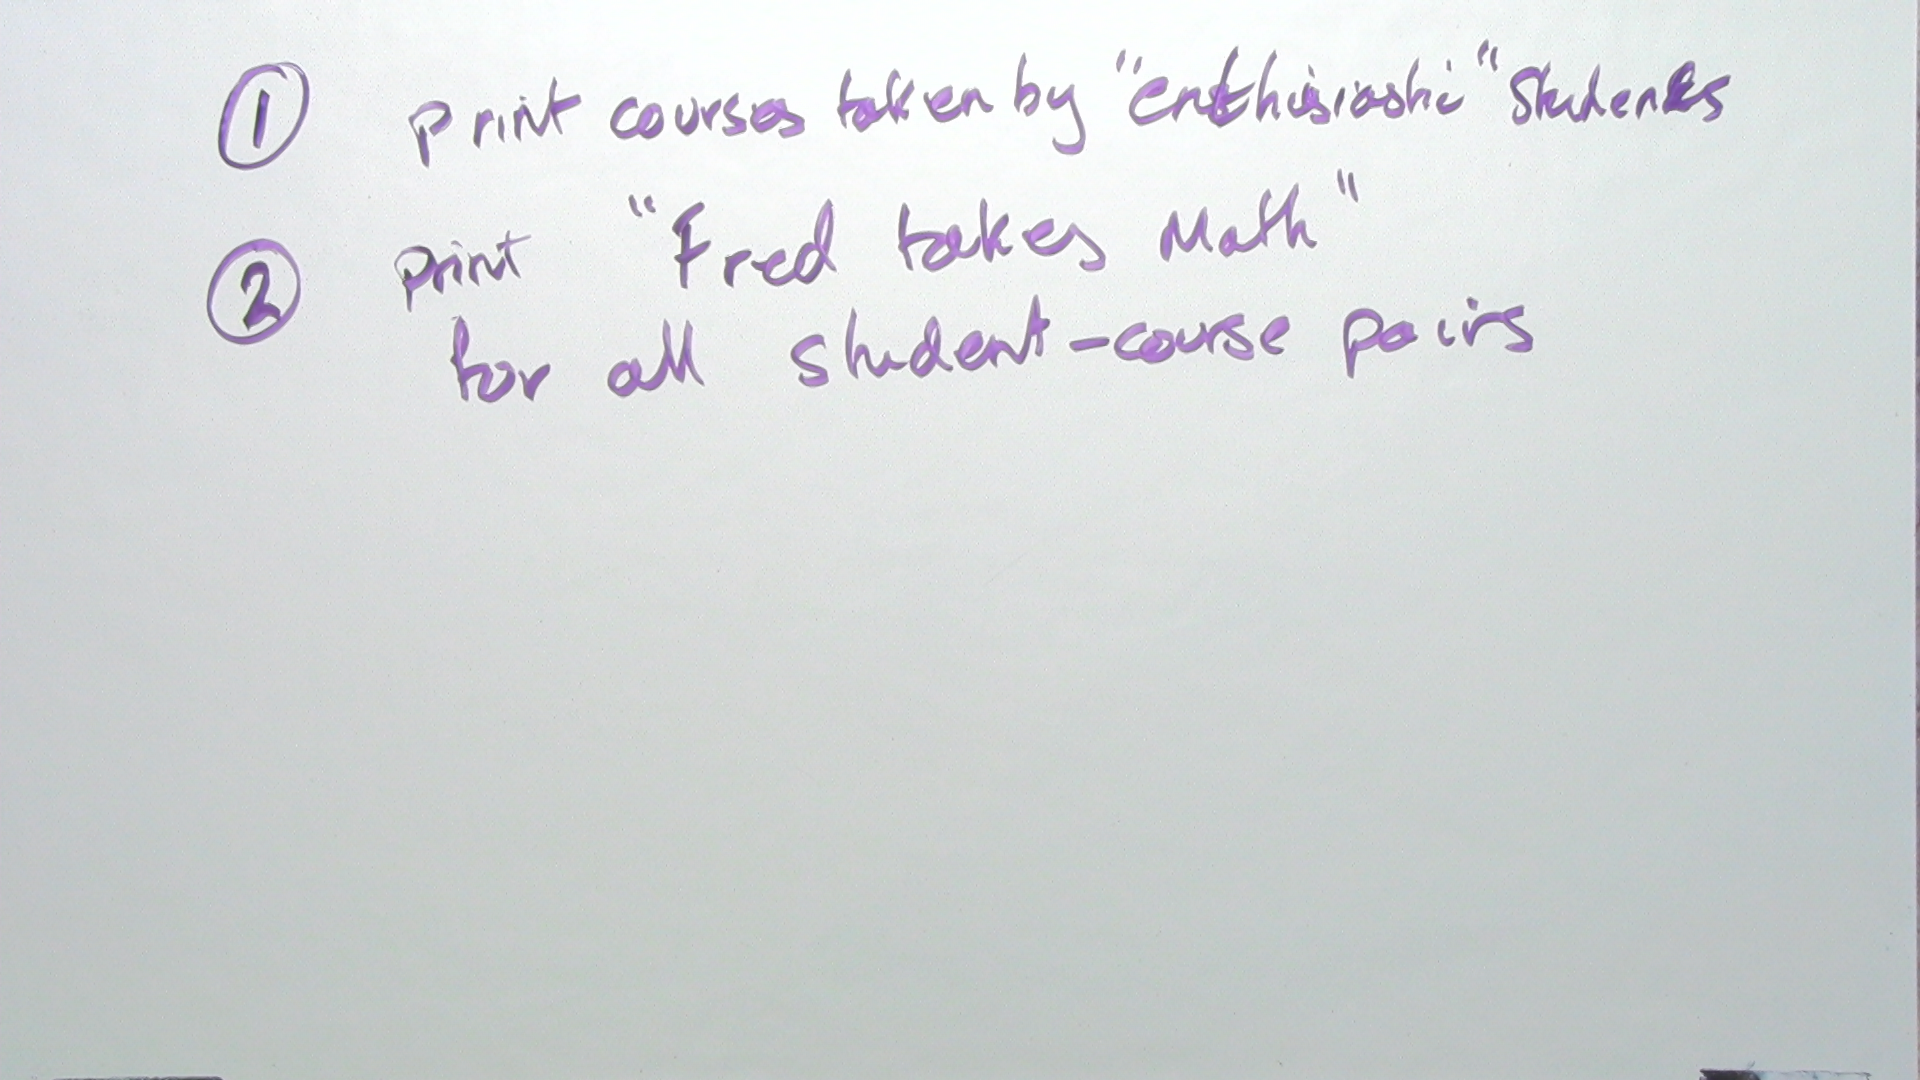 ① print courses taken by "enthisiastic" students
② print "Fred takes Math"
for all student-course pairs